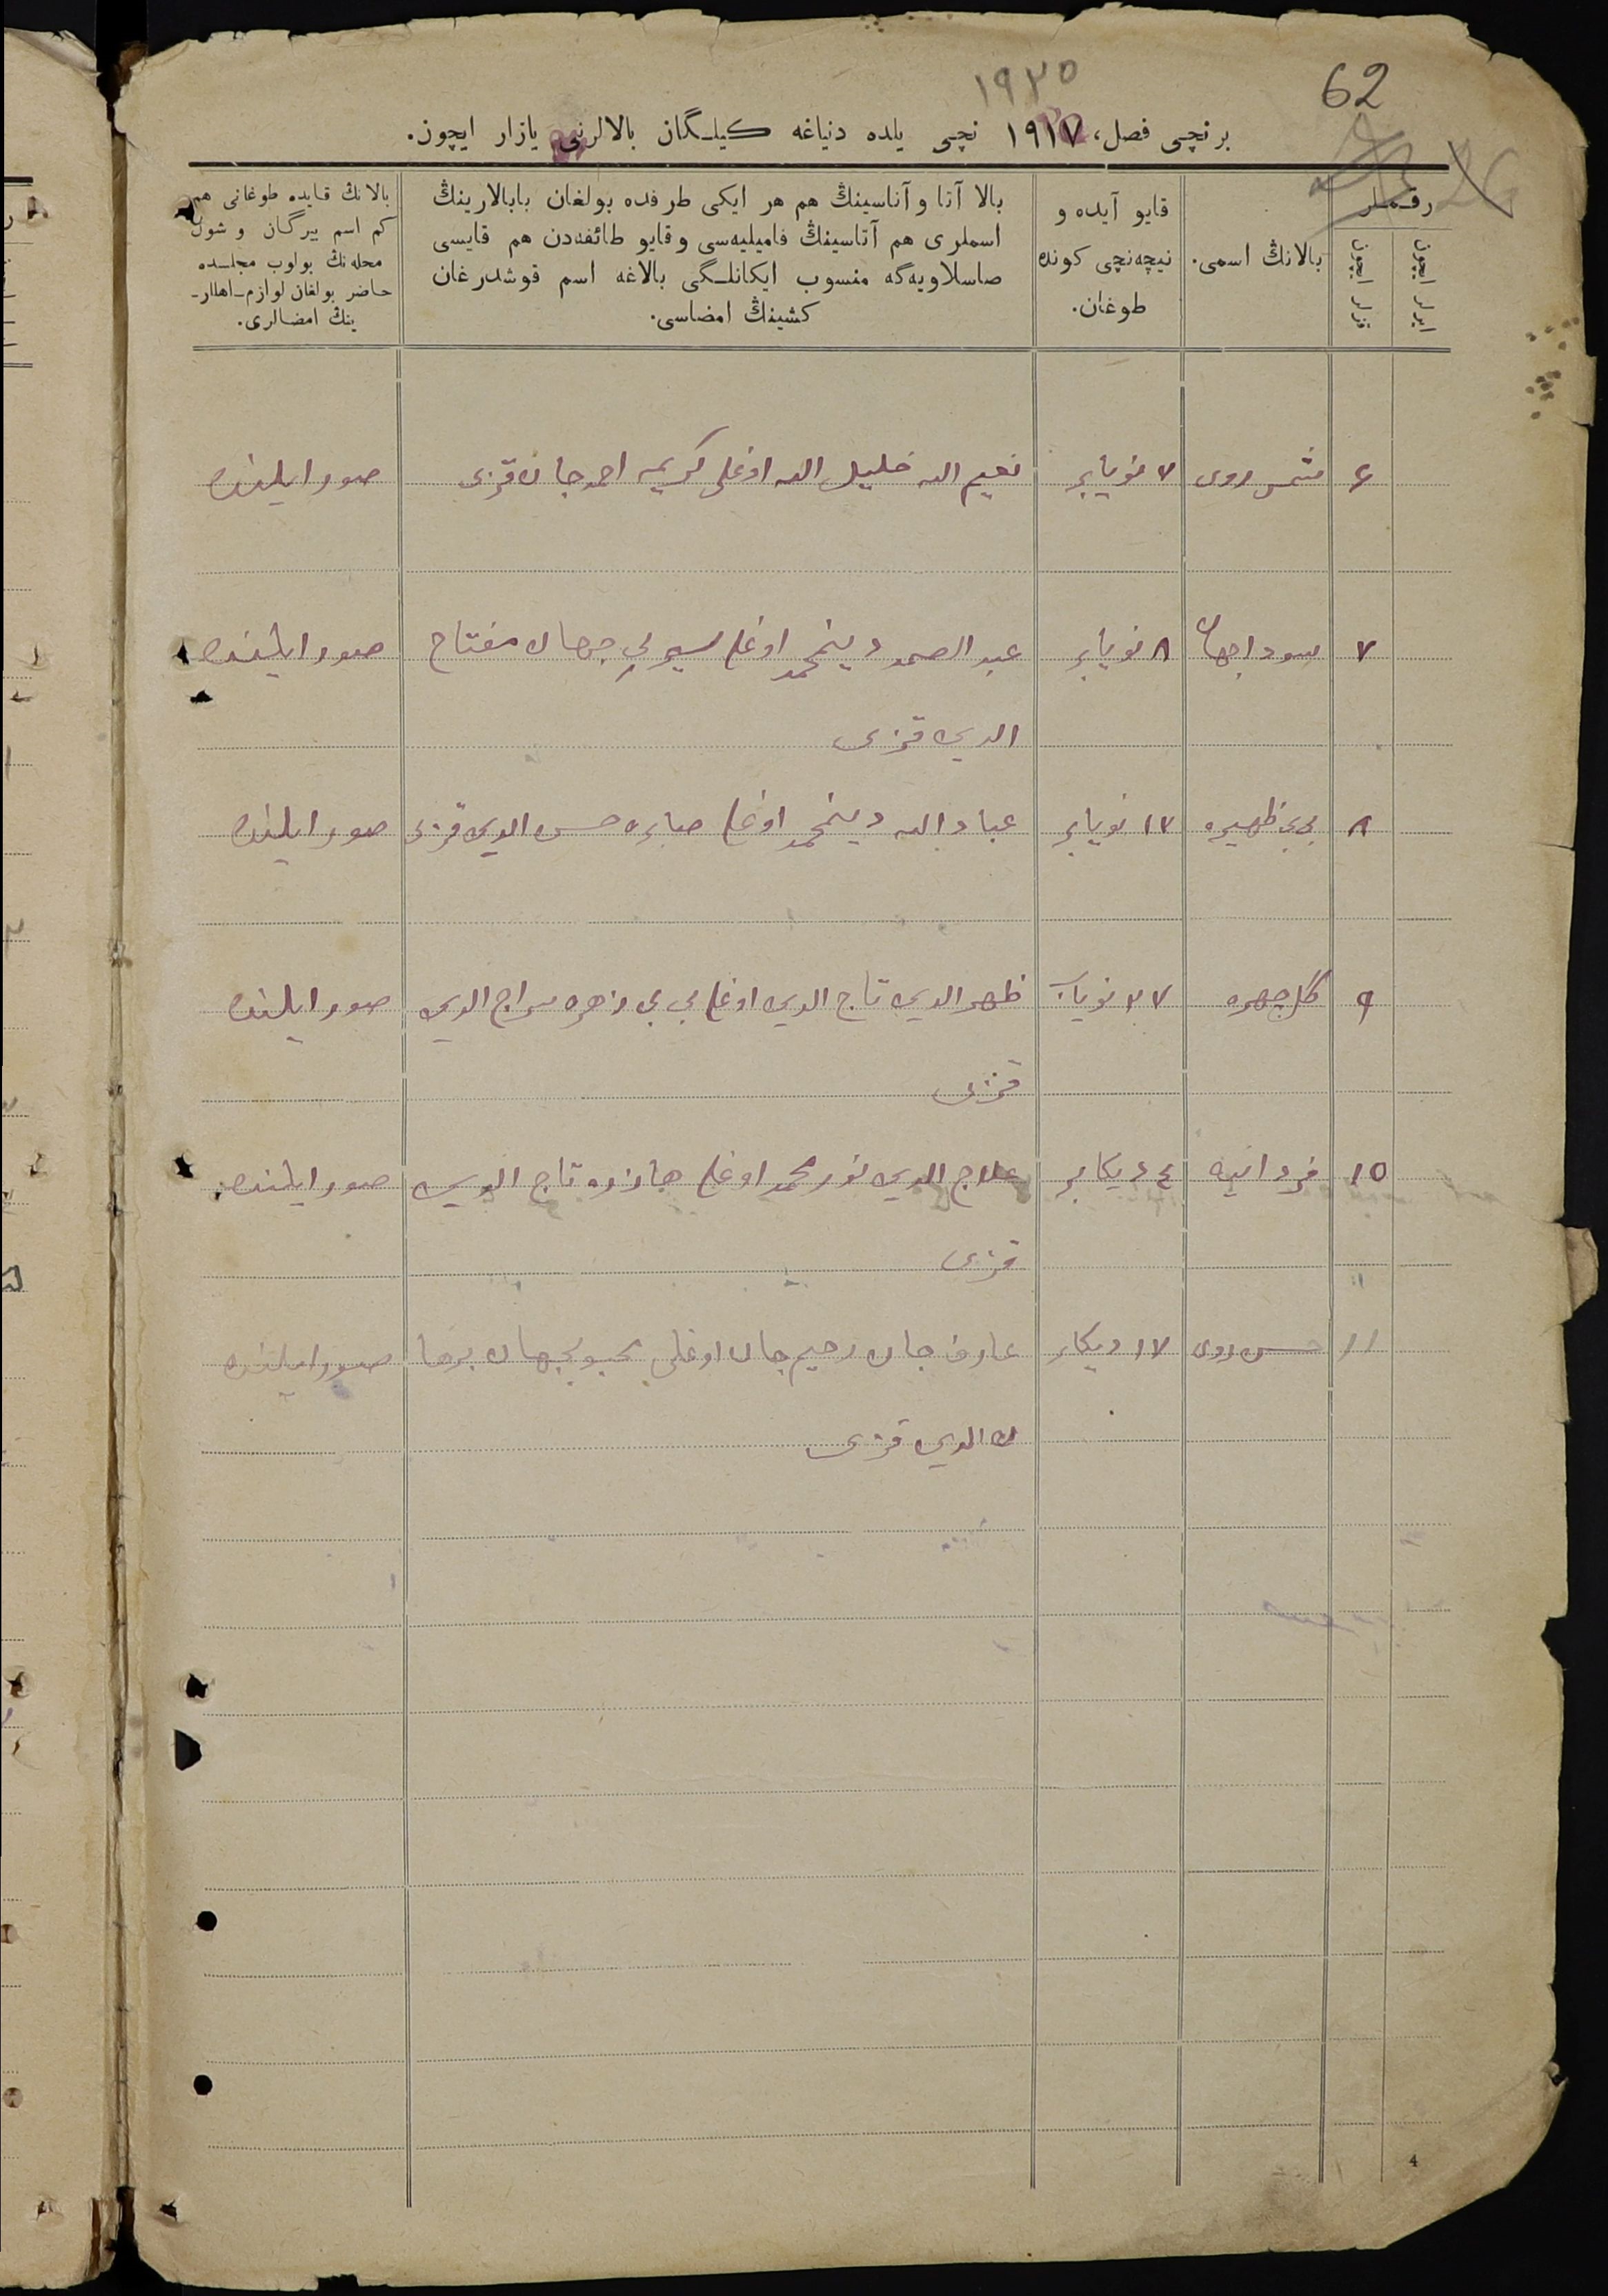 62
١٩٢٥
برنچی فصل، ١٩١٧ نچی یلده دنیاغه کیلـگان بالالرنی یازار ایچون.
رقملر
ایرلر ایچون
قزلر ایچون
بالانڭ اسمی.
قایو آیده و نیچه‌نچی کونده طوغان.
بالا آتا و آناسینڭ هم هر ایکی طرفده بولغان بابالارینڭ
اسملری هم آتاسینڭ فامیلیه‌سی و قایو طائفه‌دن هم قایسی
صاسلاویه‌گه منسوب ایکانلـگی بالاغه اسم قوشدرغان
کشینڭ امضاسی.
بالانڭ قایده طوغانی هم
کم اسم بیرگان و شول
محله‌نڭ بولوب مجلسده
حاضر بولغان لوازم‌ـاهللرـ
ینڭ امضالری.
۶ شمس روی ٧ نویابر نعیم الله خلیل الله اوغلی کریمه احمدجان قزی
٧ سوداجهان ٨ نویابر عبد الصمد دینمحمد اوغلی جهان مفتاح
الدین قزی
٨ بی بی ظهیره ١٢ نویابر عباد الله دینمحمد اوغلی صابره حسن الدین قزی
٩ کل چهره ٢٧ نویابر ظهر الدین تاج الدین اوغلی بی بی زهره سراج الدین
قزی
١٥ فردانیه ٤ دیکابر علاج الدین نورمحمد اوغلی تاج الدین
قزی
١١ حسن روی ١٧ دیکابر عارف جان رحیم جان اوغلی محبوبجهان برها
ن الدین قزی
4